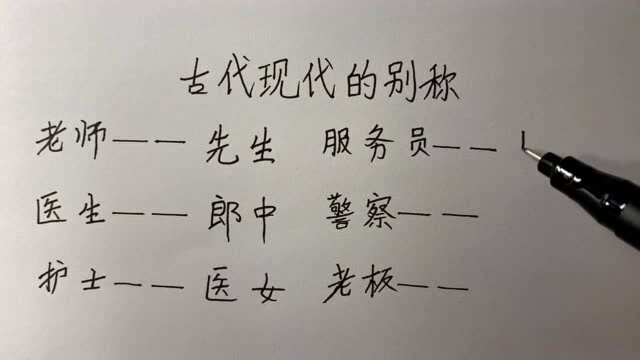 古代现代的别称
老师——先生 服务员——
医生——郎中 警察——
护士——医女 老板——